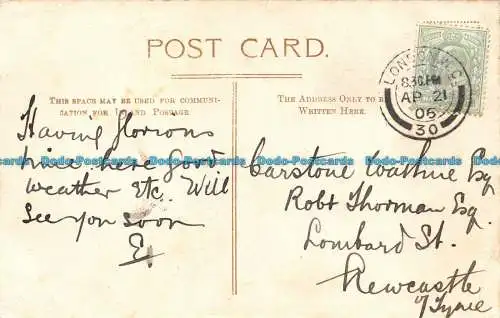 POST CARD.
THIS SPACE MAY BE USED FOR COMMUNI-
CATION FOR INLAND POSTAGE
THE ADDRESS ONLY TO BE
WRITTEN HERE.
LONDON
8.30 PM
AP 21
06
30
Having glorious
time here good
weather etc. Will
see you soon
E.
Carstone Esq
Robt Thorman Esq.
Lombard St.
Newcastle
o/Tyne
Dodo-Postcards Dodo-Postcards Dodo-Postcards Dodo-Postcards